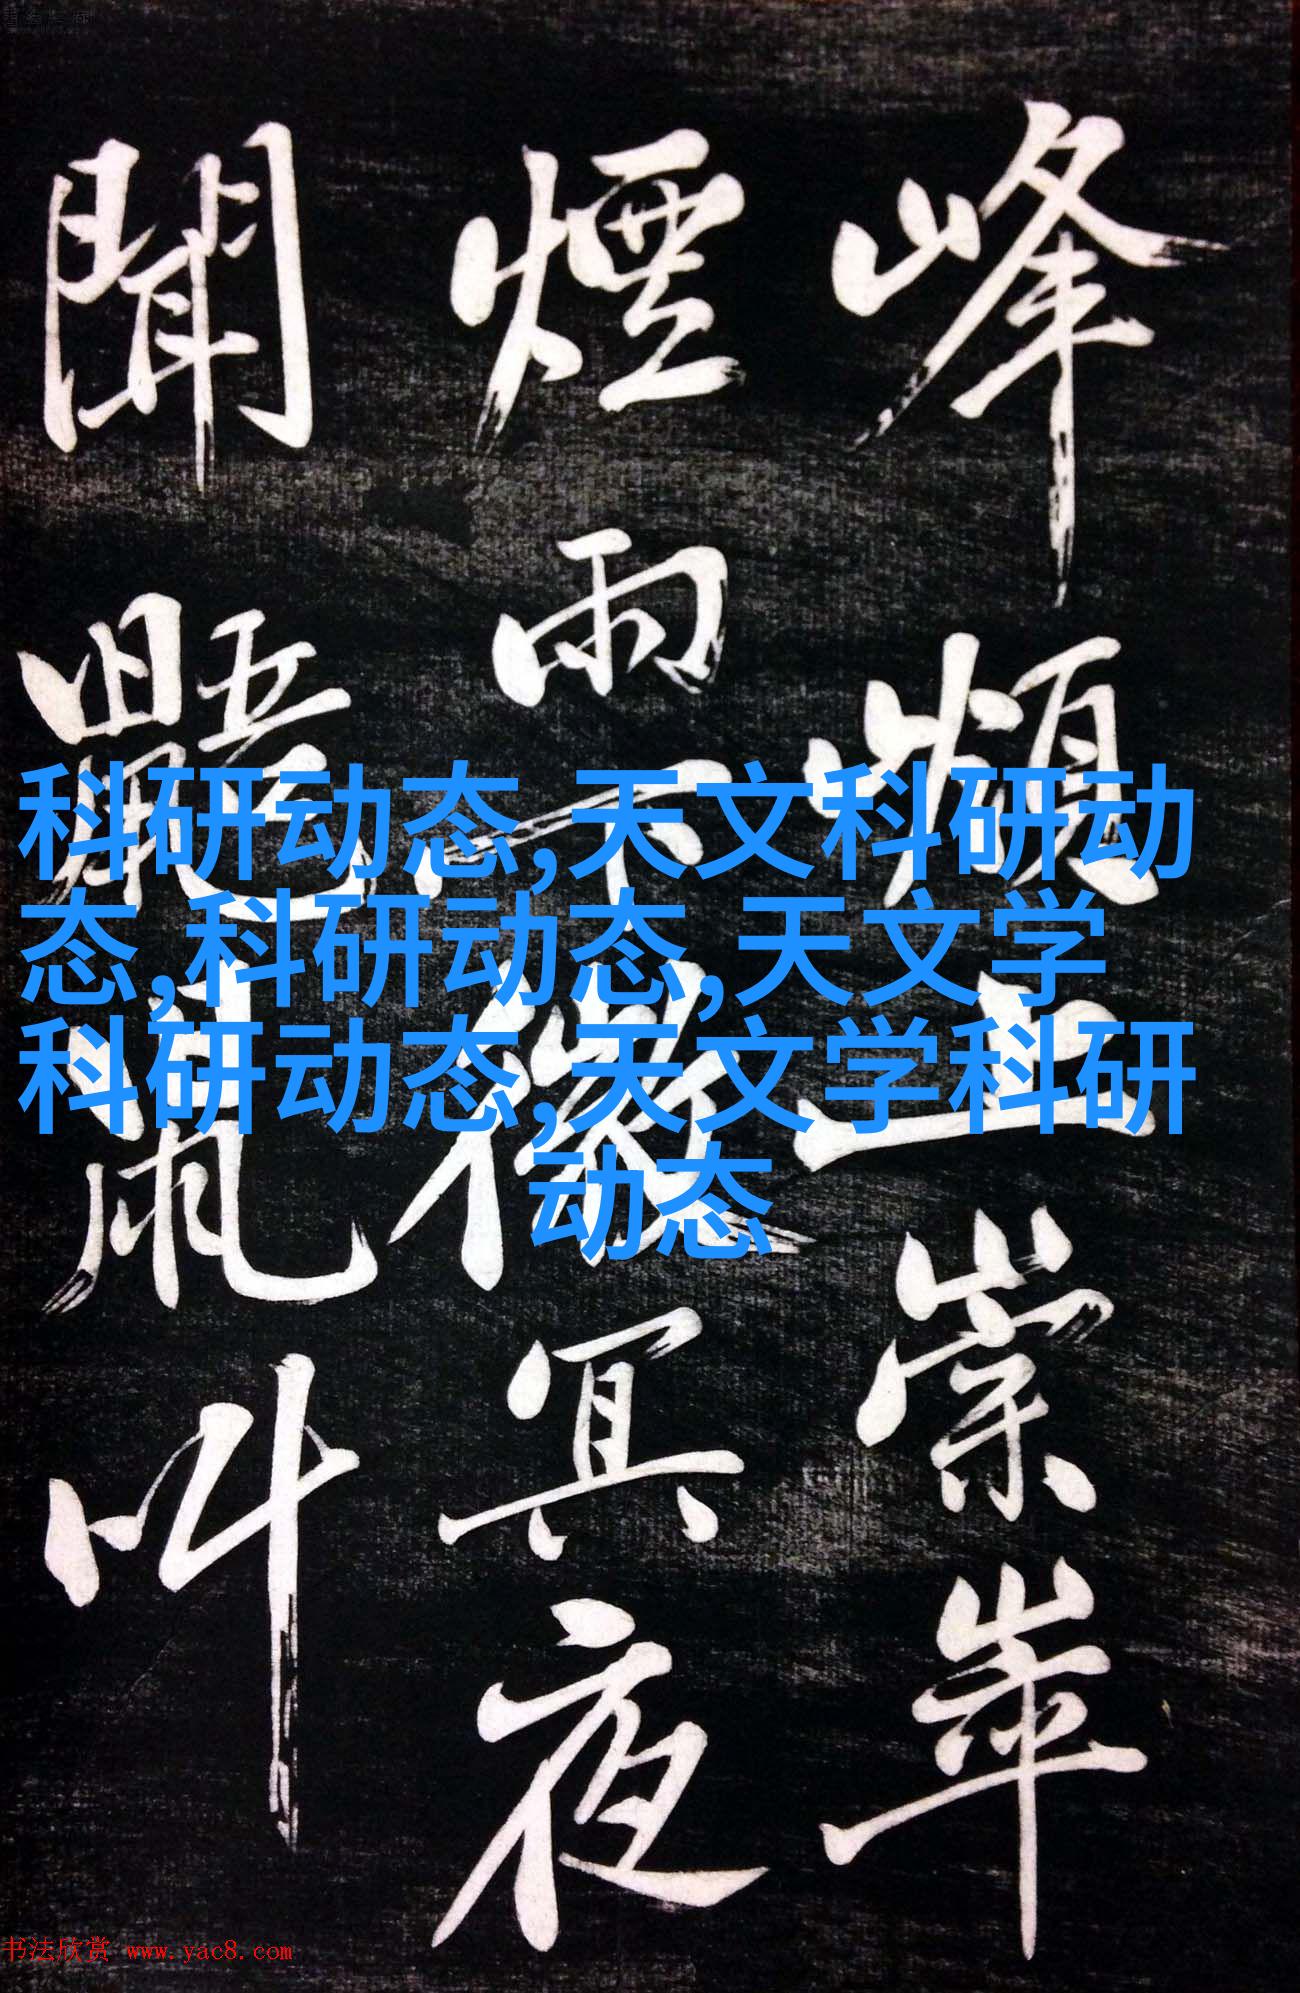 峰上崇崒
煙雨微冥夜
聞鼯鼠叫
科研动态,天文科研动
态,科研动态,天文学
科研动态,天文学科研
动态
书法欣赏 www.yac8.com